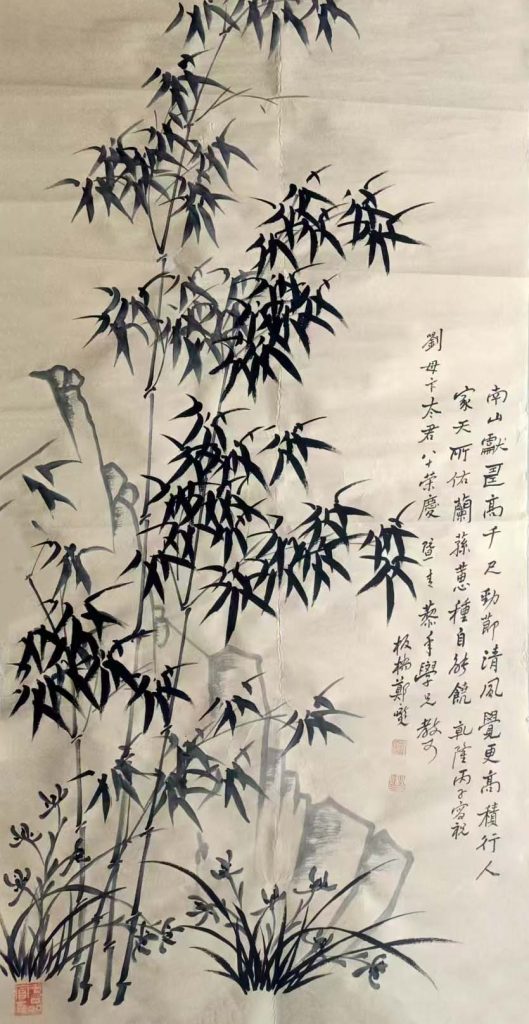 南山獻壽高千尺勁節清風覺更高積行人
家天所佑蘭蓀蕙種自能饒 乾隆丙子祝
劉母卞太君八十荣慶 暨青藜年學兄教可
板橋鄭燮